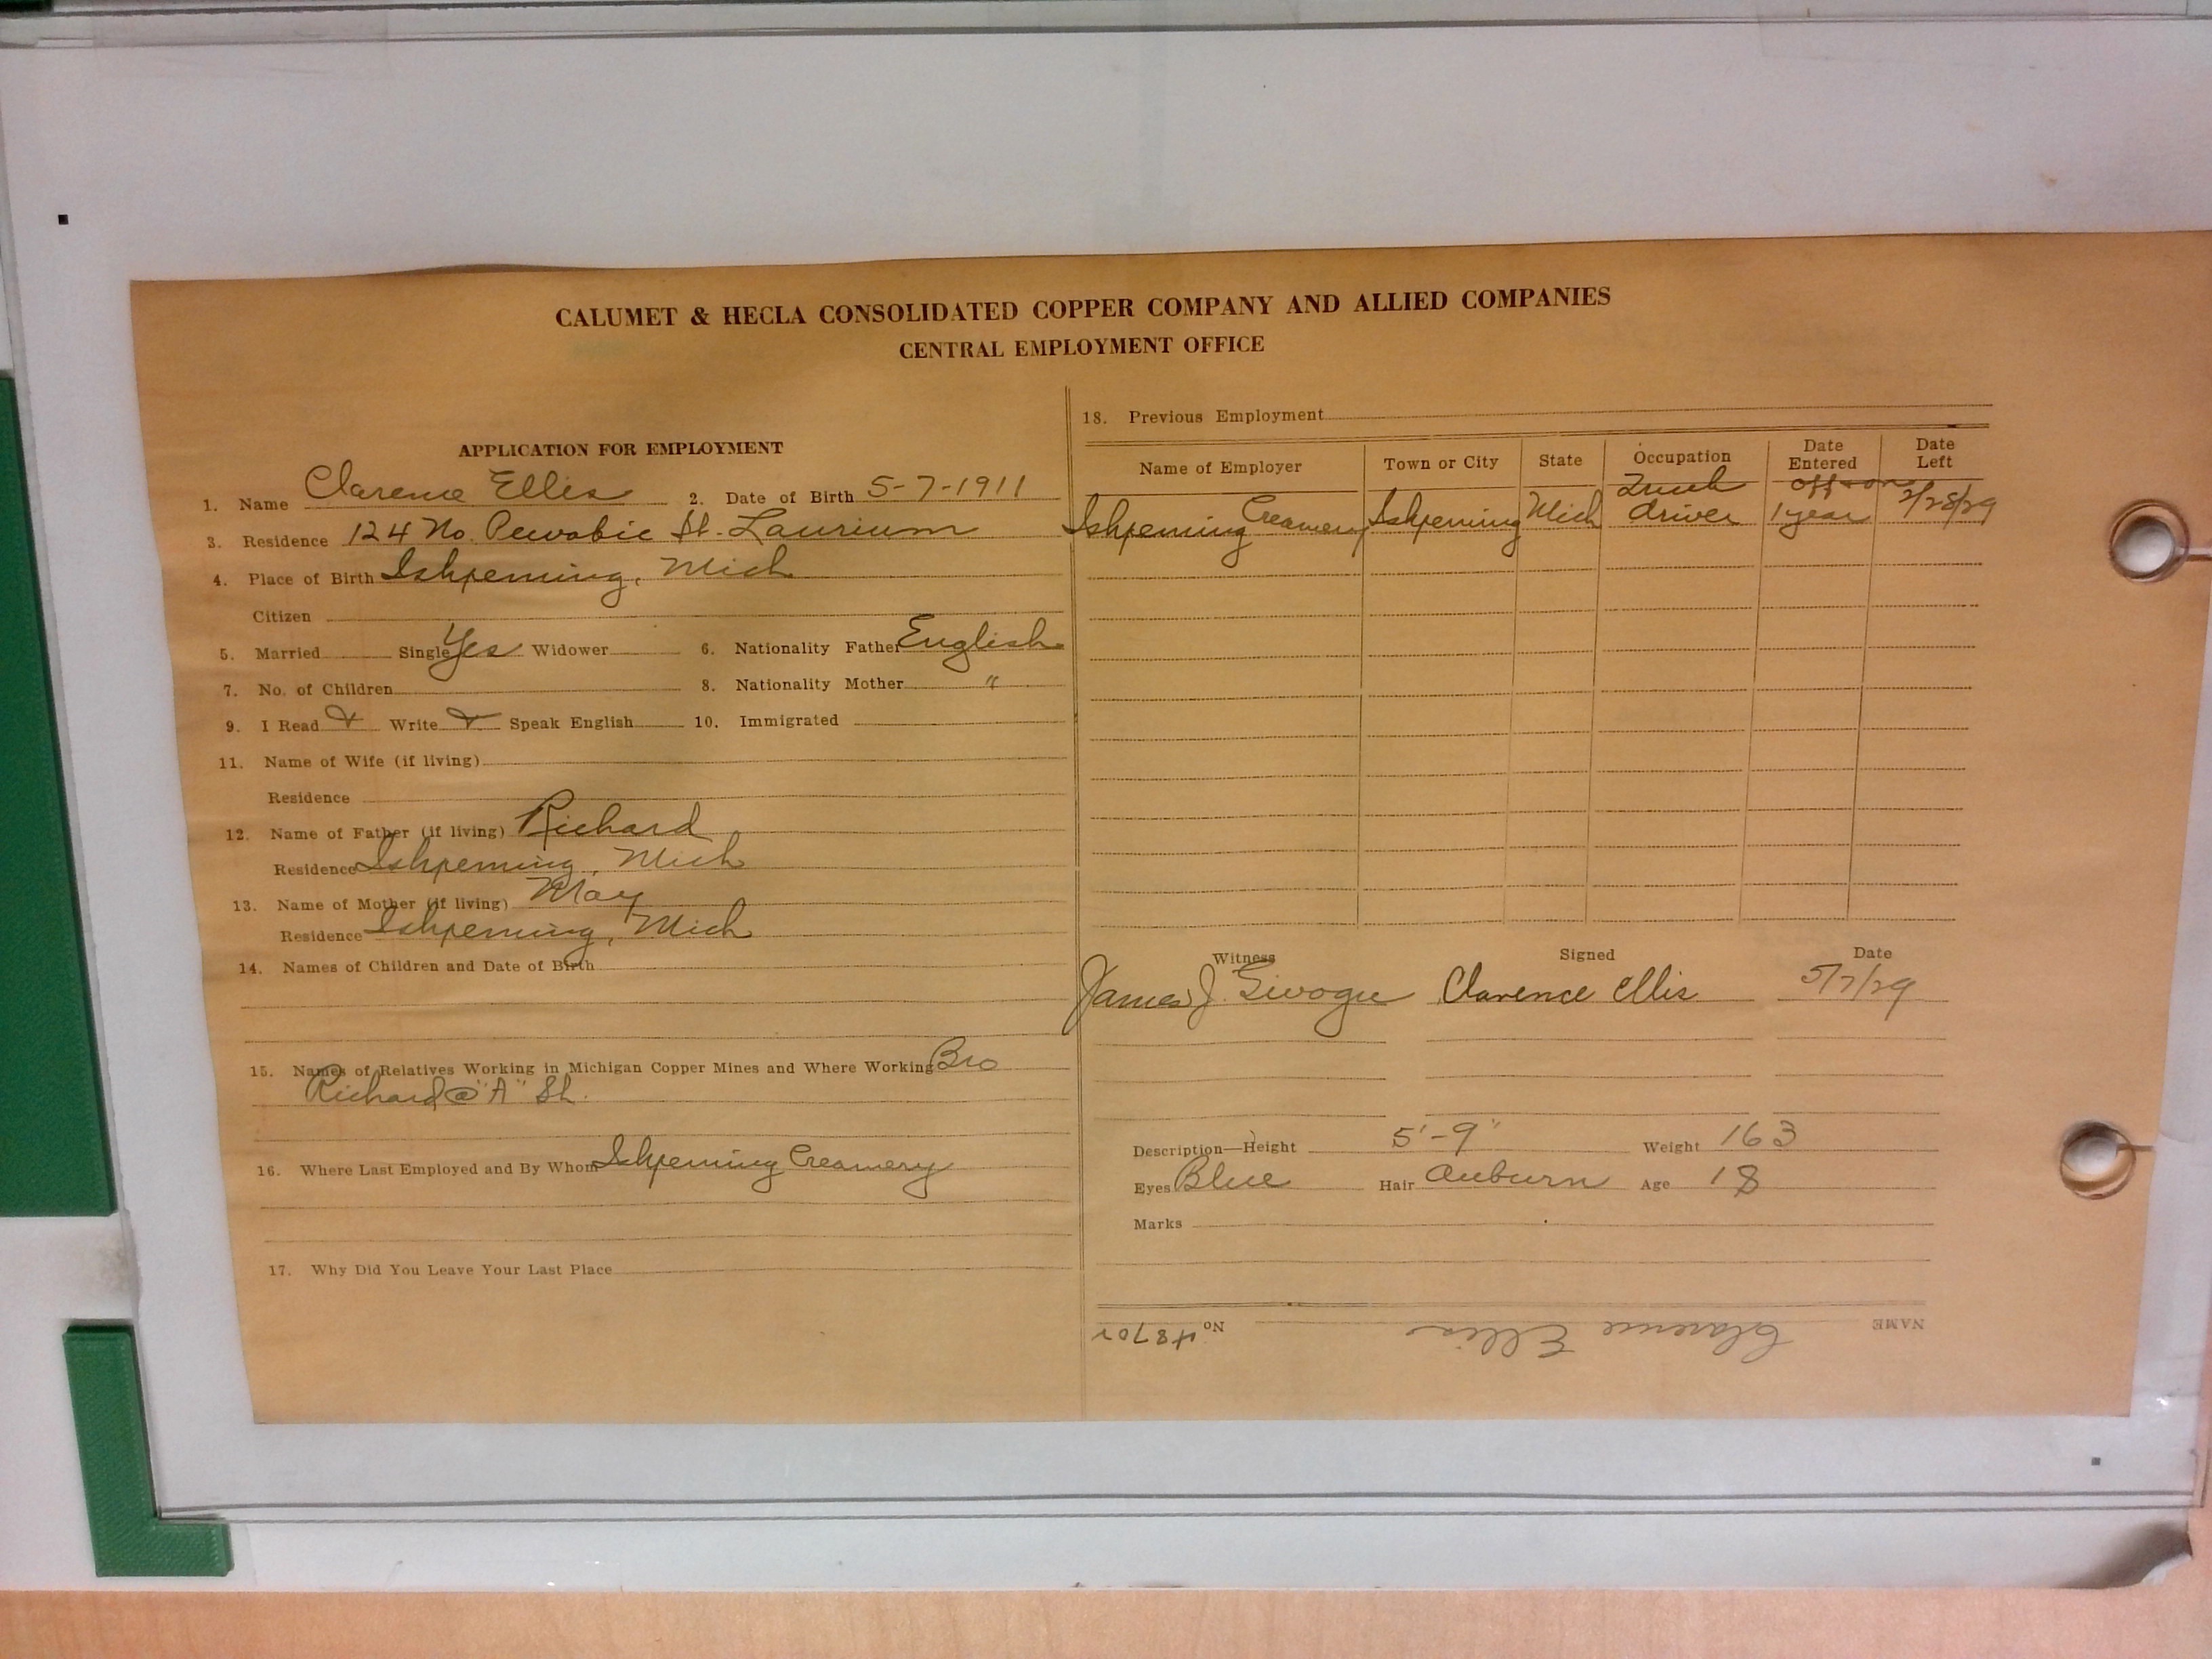 CALUMET & HECLA CONSOLIDATED COPPER COMPANY AND ALLIED COMPANIES
CENTRAL EMPLOYMENT OFFICE
APPLICATION FOR EMPLOYMENT
1. Name Clarence Ellis 2. Date of Birth 5-7-1911
3. Residence 124 No. Pewabic St. Laurium
4. Place of Birth Ishpeming, Mich
Citizen
5. Married Single Yes Widower 6. Nationality Father English
7. No. of Children 8. Nationality Mother "
9. I Read Write Speak English 10. Immigrated
11. Name of Wife (if living)
Residence
12. Name of Father (if living) Richard
Residence Ishpeming, Mich
13. Name of Mother (if living) May
Residence Ishpeming, Mich
14. Names of Children and Date of Birth
15. Names of Relatives Working in Michigan Copper Mines and Where Working Bro
Richard @ "A" Sh.
16. Where Last Employed and By Whom Ishpeming Creamery
17. Why Did You Leave Your Last Place
18. Previous Employment
Name of Employer Town or City State Occupation Date Entered Date Left
Ishpeming Creamery Ishpeming Mich Truck driver off + on 1 year 2/28/29
Witness Signed Date
James J. Clarence Ellis 5/7/29
Description—Height 5'-9" Weight 163
Eyes Blue Hair Auburn Age 18
Marks
NAME Clarence Ellis No. 48702